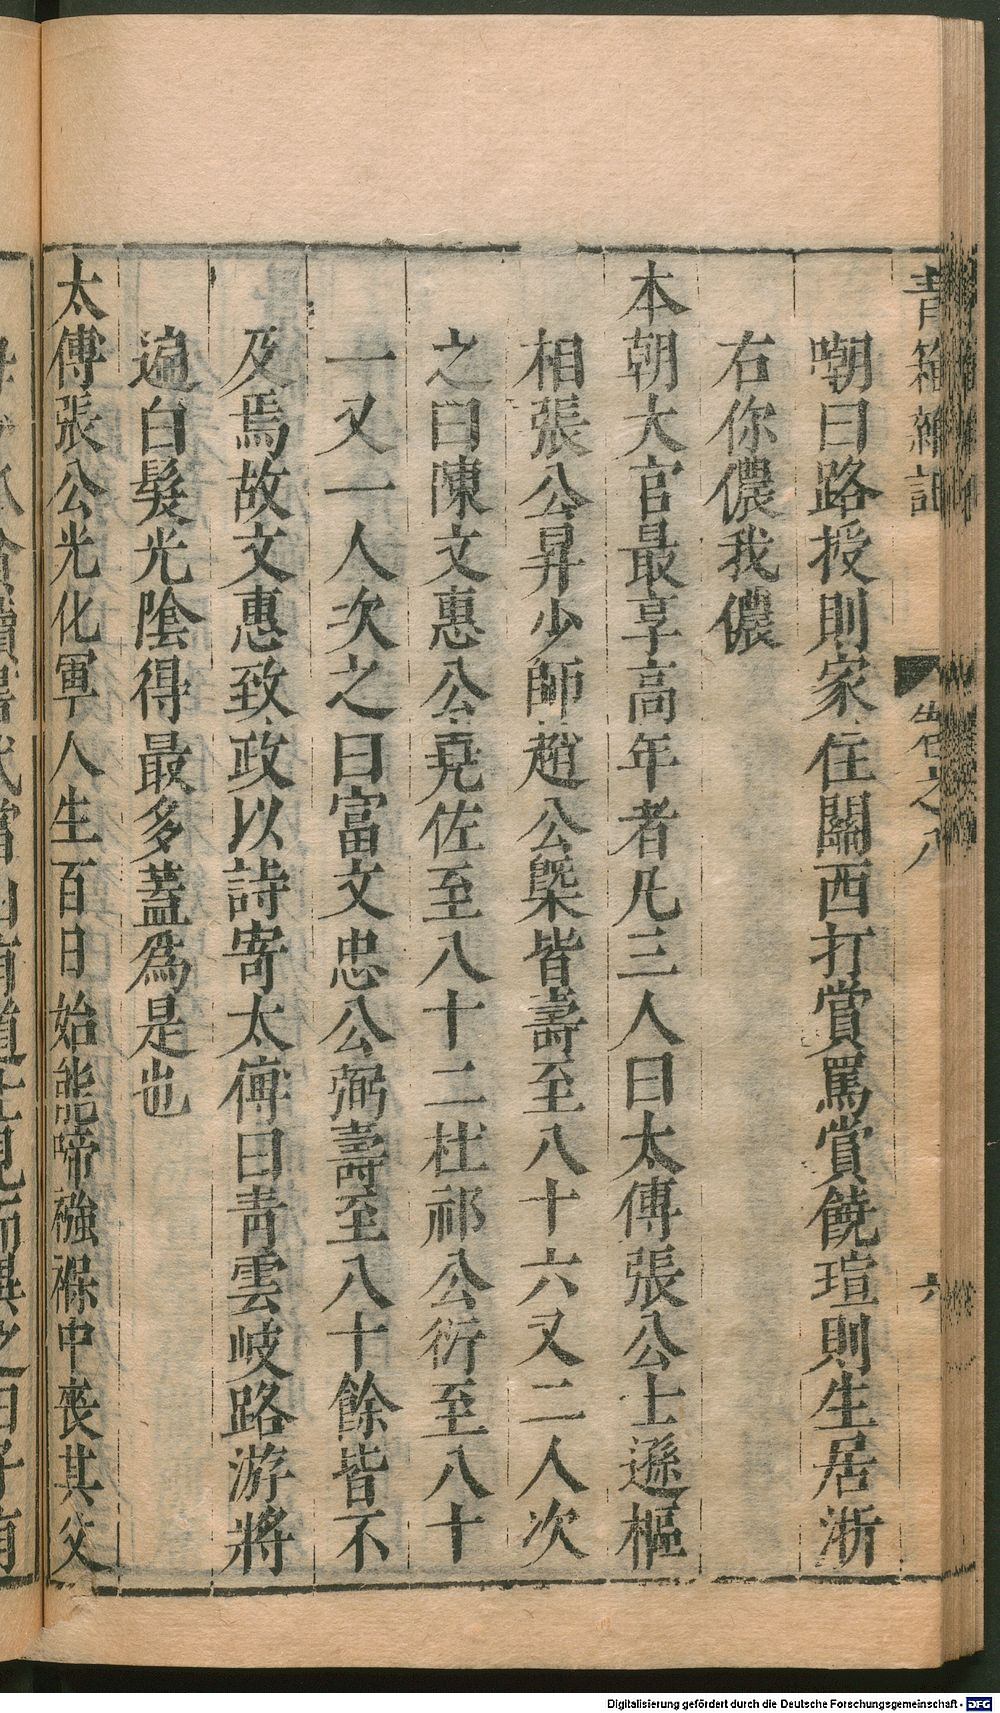 青箱雜記
卷之八
六
嘲曰路授則家住關西打賞罵賞饒瑄則生居浙
右你儂我儂
本朝大官最享高年者凡三人曰太傅張公士遜樞
相張公昇少師趙公槩皆壽至八十六又二人次
之曰陳文惠公堯佐至八十二杜祁公衍至八十
一又一人次之曰富文忠公弼壽至八十餘皆不
及焉故文惠致政以詩寄太傅曰青雲岐路游將
遍白髮光陰得最多蓋爲是也
太傅張公光化軍人生百日始能啼襁褓中喪其父
Digitalisierung gefördert durch die Deutsche Forschungsgemeinschaft - DFG